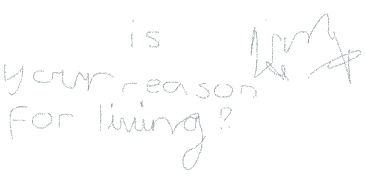 is
your reason
for living?